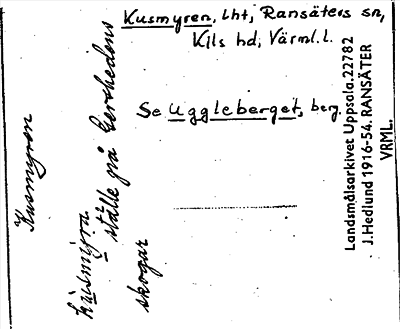 Kusmyren, lht, Ransäters sn,
Kils hd, Värml. l.
Se Uggleberget, berg.
Kusmyren
ställe på Gershedens
skogar
Landsmålsarkivet Uppsala. 22782
J. Hedlund 1916-54. RANSÄTER
VRML.